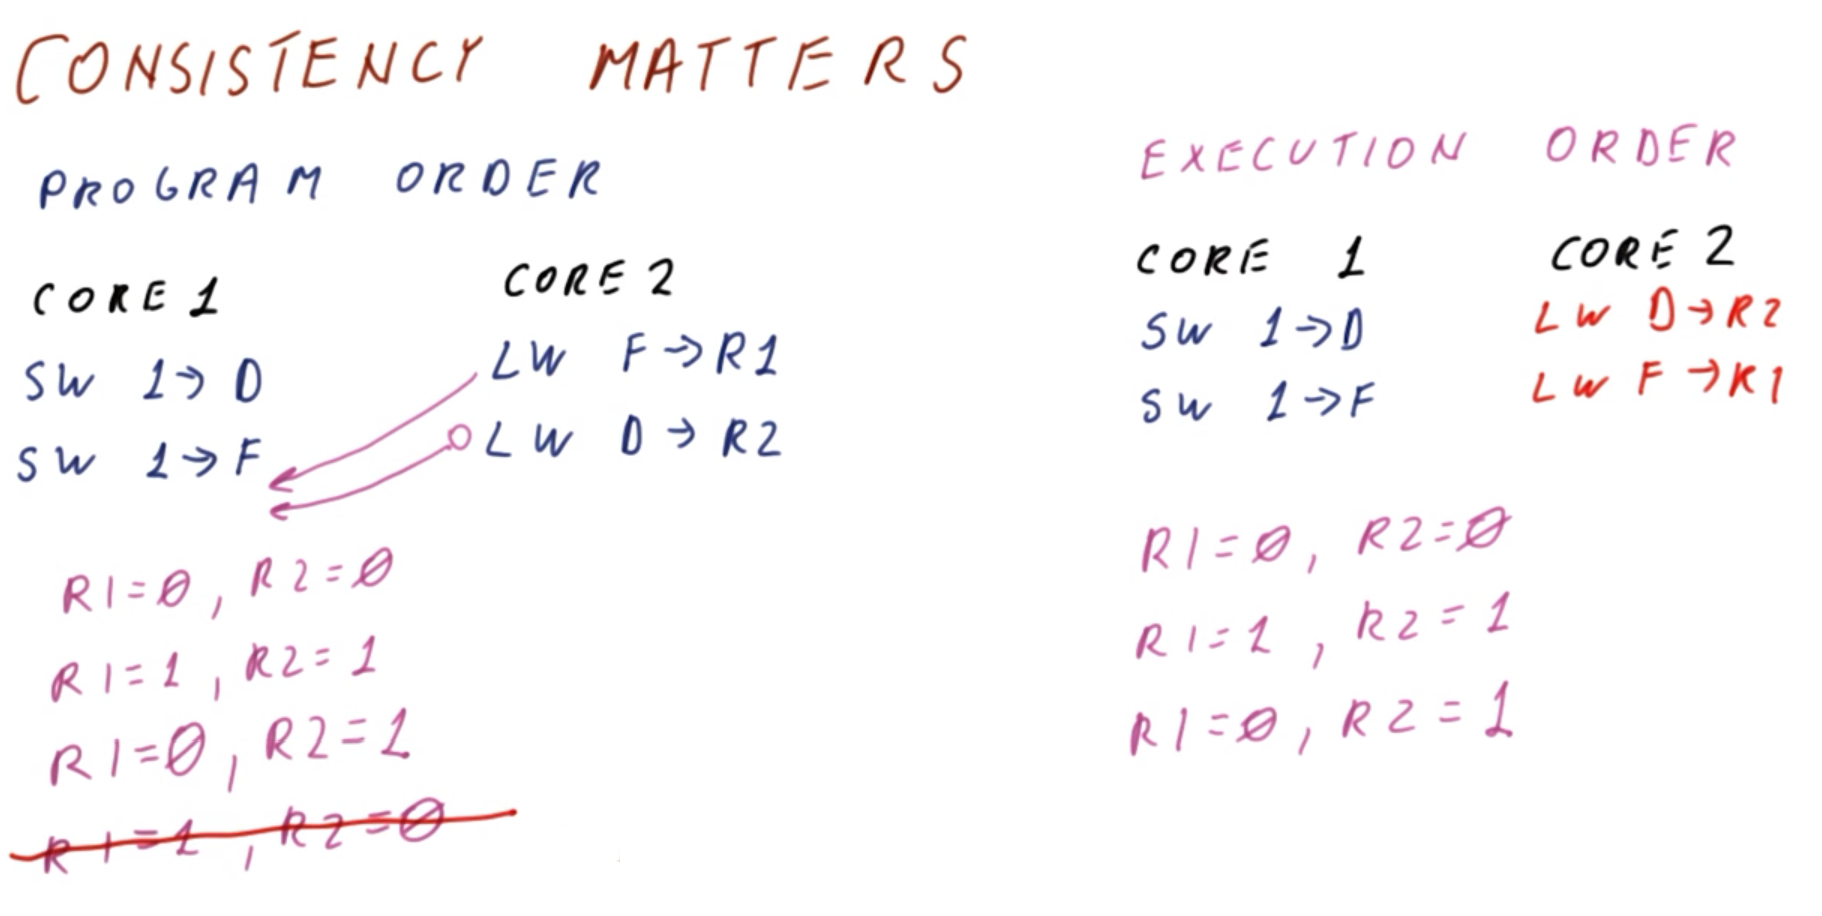 CONSISTENCY MATTERS
PROGRAM ORDER
CORE 1
SW 1→D
SW 1→F
CORE 2
LW F→R1
LW D→R2
R1=0, R2=0
R1=1, R2=1
R1=0, R2=1
R1=1, R2=0
EXECUTION ORDER
CORE 1
SW 1→D
SW 1→F
CORE 2
LW D→R2
LW F→R1
R1=0, R2=0
R1=1, R2=1
R1=0, R2=1